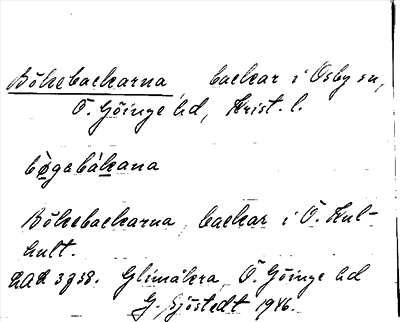 Bökebackarna, backar i Osby sn,
Ö. Göinge hd, Krist. l.
bögabákana
Bökebackarna, backar i Ö. Hul-
hult.
Glimåkra, Ö. Göinge hd
G. Sjöstedt 1946.